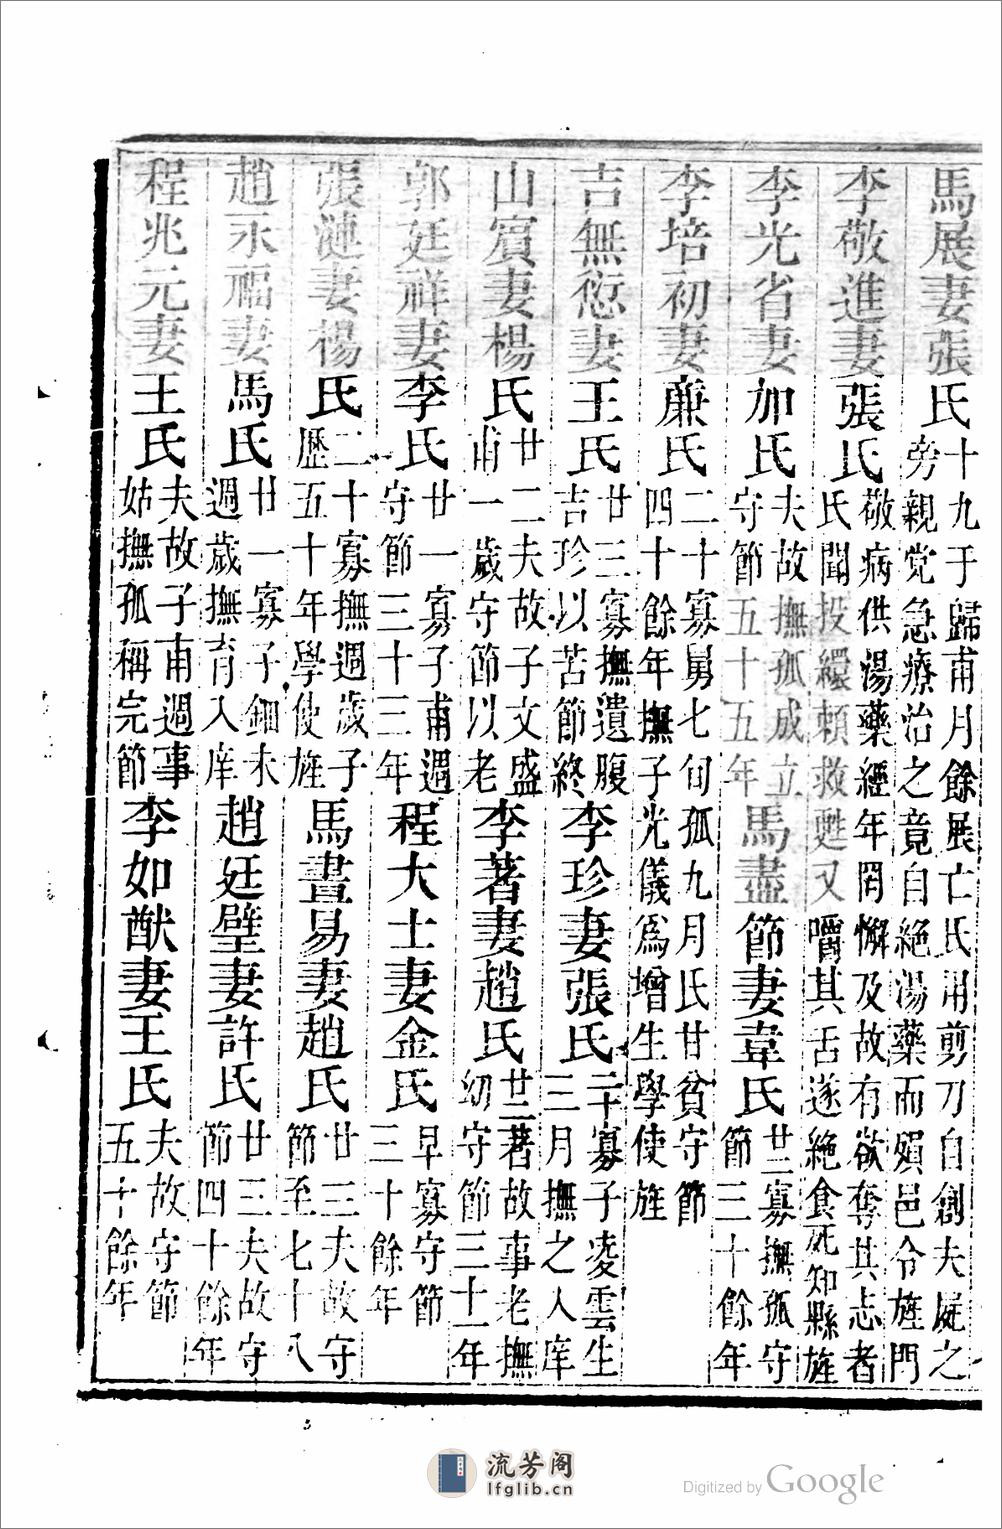 馬展妻張氏十九于歸甫月餘展亡氏用剪刀自創夫屍之旁親党急療治之竟自絕湯藥而殞邑令旌門
李敬進妻張氏敬病供湯藥經年罔懈及故有欲奪其志者氏聞投繯頼救甦又嚼其舌遂絕食死知縣旌
李光省妻加氏夫故撫孤成立守節五十五年馬盡節妻韋氏廿三寡撫孤守節三十餘年
李培初妻亷氏二十寡舅七旬孤九月氏甘貧守節四十餘年撫子光儀爲增生學使旌
吉無愆妻王氏廿三寡撫遺腹吉珍以苦節終李珍妻張氏二十寡子凌雲生三月撫之入庠
山賔妻楊氏廿二夫故子文盛甫一歲守節以老李著妻趙氏廿二著故事老撫幼守節三十一年
郭廷祥妻李氏廿一寡子甫週守節三十三年程大士妻金氏早寡守節三十餘年
張漣妻楊氏二十寡撫週歲子歷五十年學使旌馬晝易妻趙氏廿三夫故守節至七十八
趙永福妻馬氏廿一寡子鈿未週歲撫育入庠趙廷璧妻許氏廿三夫故守節四十餘年
程兆元妻王氏夫故子甫週事姑撫孤稱完節李如猷妻王氏夫故守節五十餘年
流芳阁
lfglib.cn
Digitized by Google